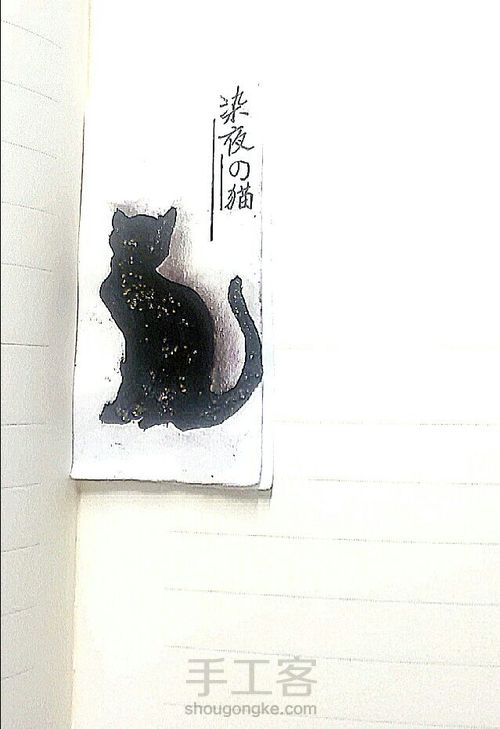 染夜の猫
手工客
shougongke.com